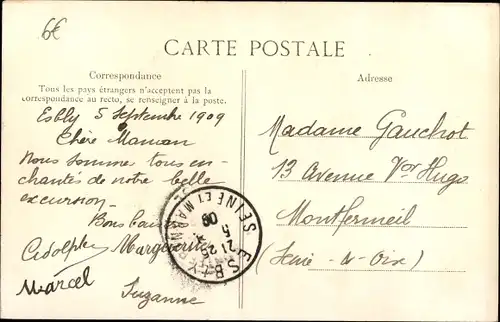 6€
CARTE POSTALE
Correspondance
Tous les pays étrangers n'acceptent pas la
correspondance au recto, se renseigner à la poste.
Esbly 5 Septembre 1909
Chère Maman
Nous sommes tous en-
chantés de notre belle
excursion-
Bons bai
Adolphe Marguerite
Marcel
Suzanne
Adresse
Madame Gauchot
13 Avenue Vor Hugo
Montfermeil
(Seine-&-Oise)
ESBLY
SEINE ET MARNE
21 25
5
09